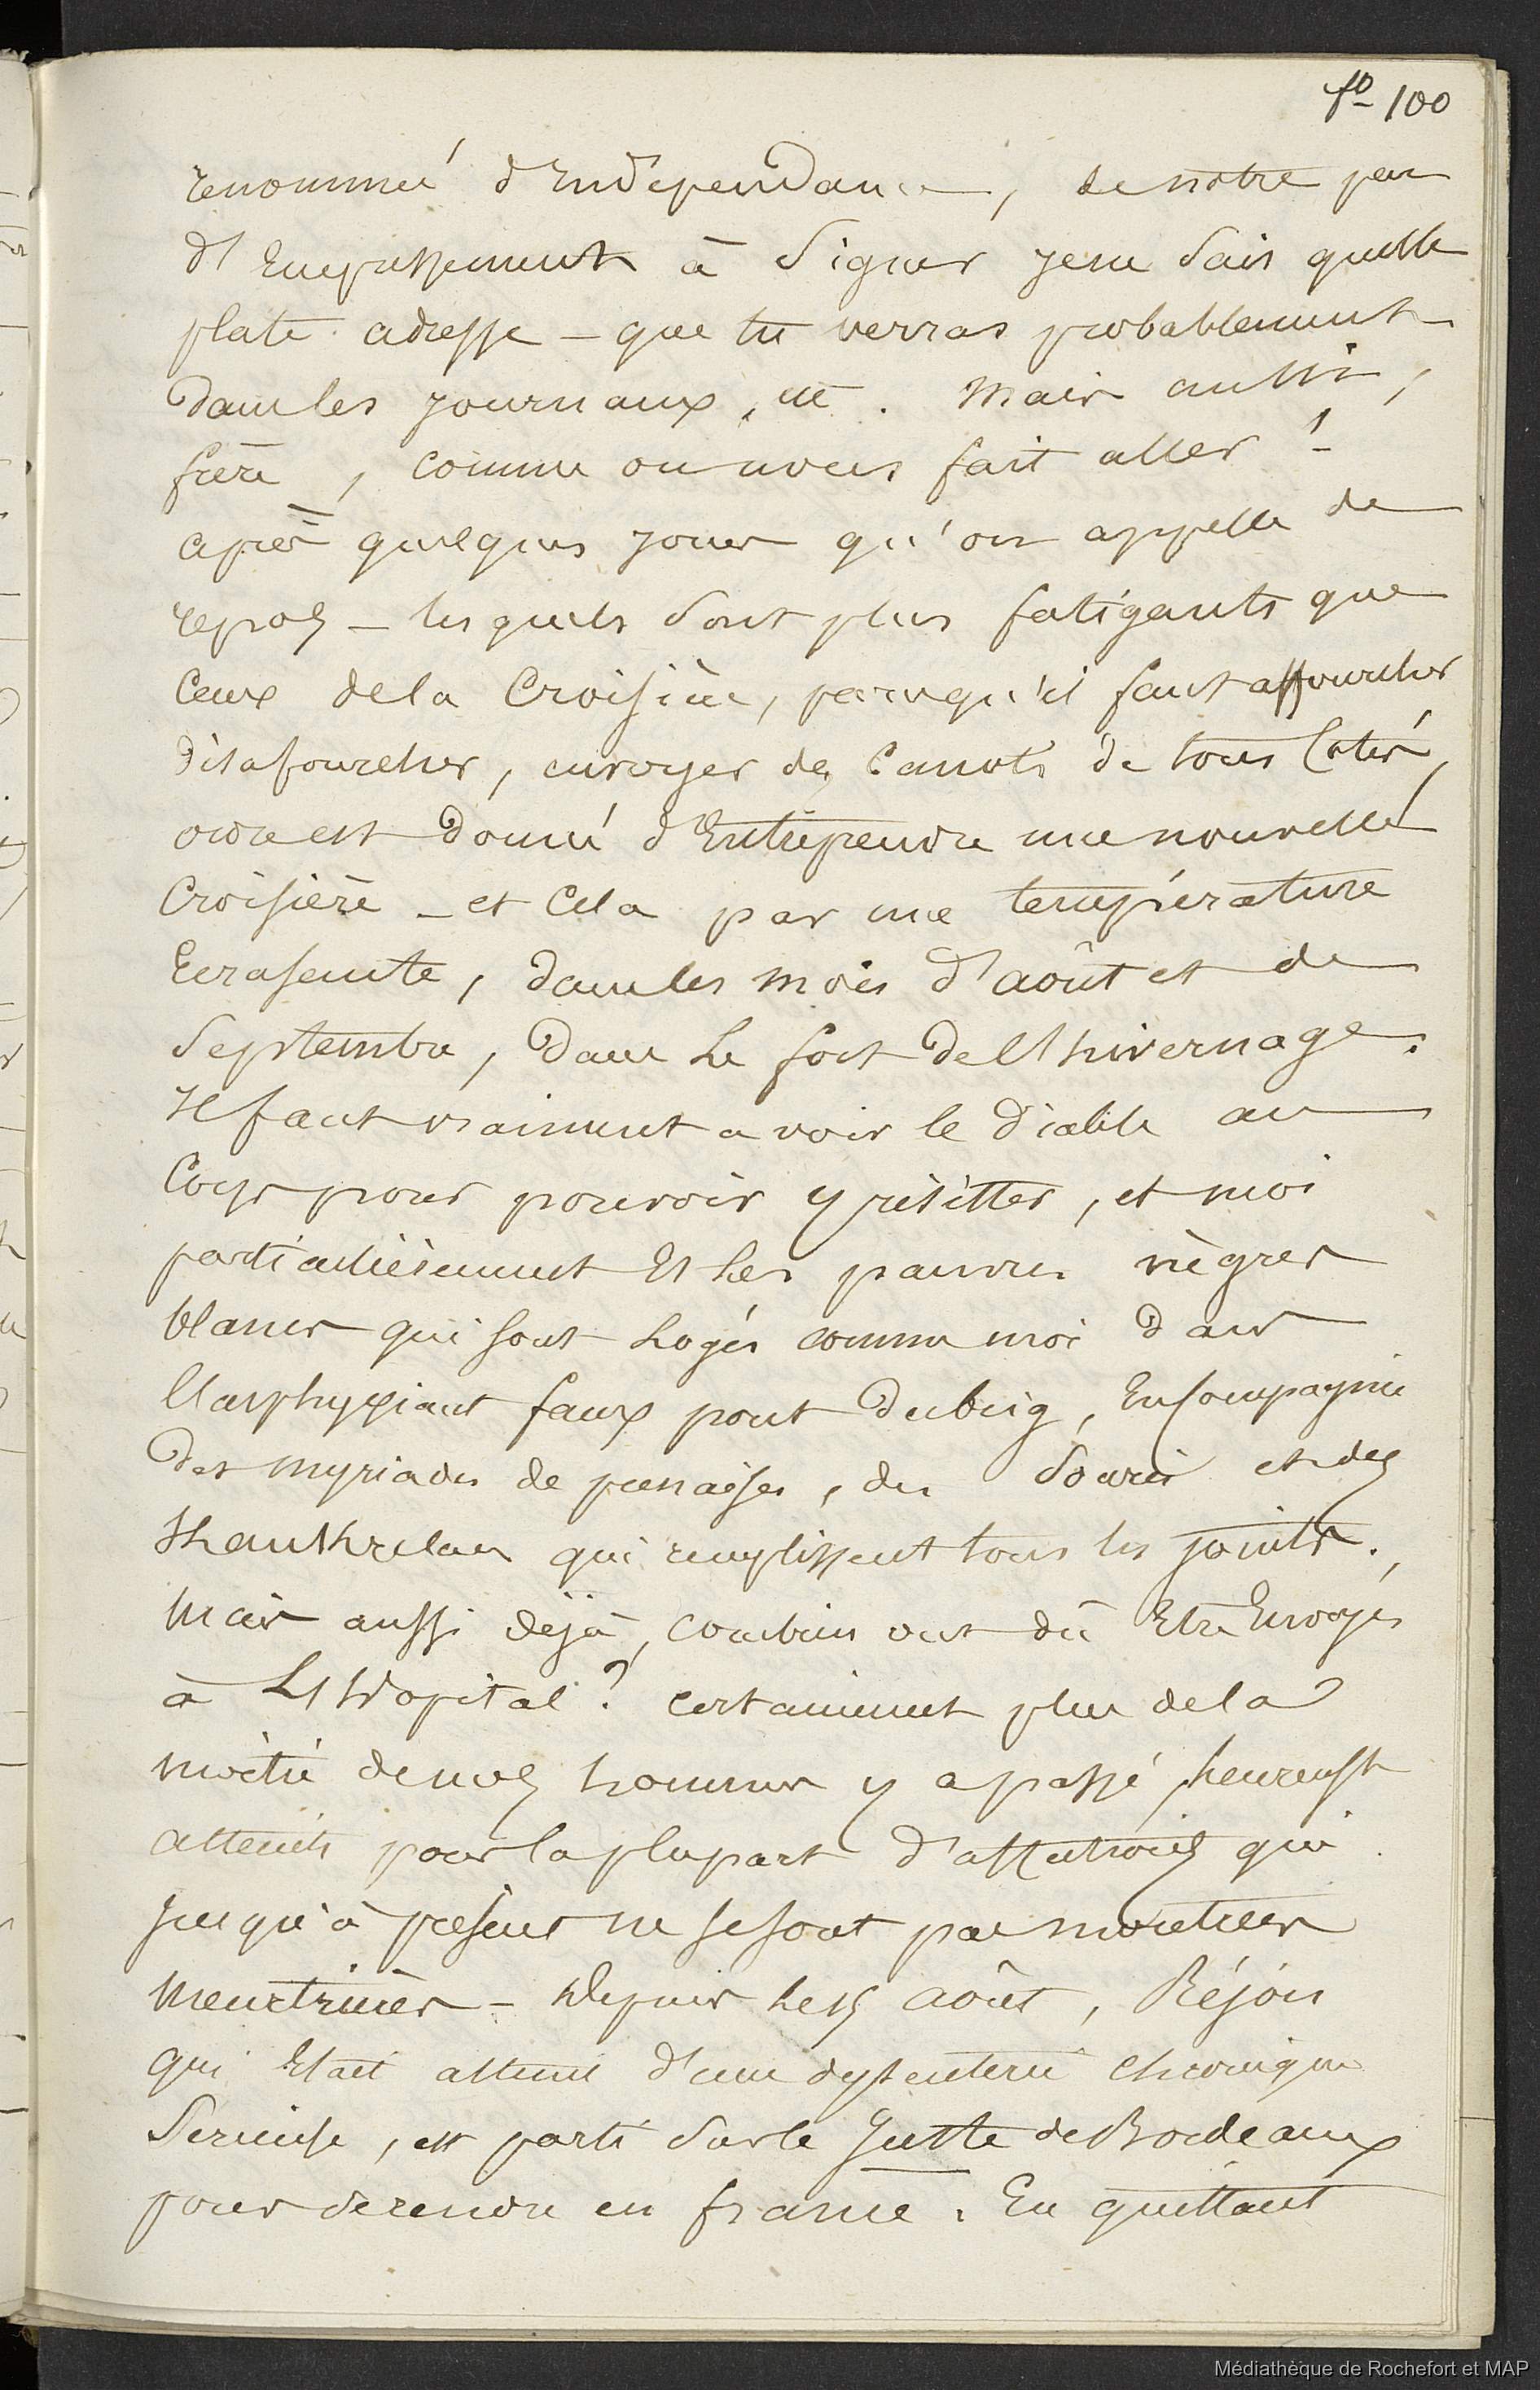 fo 100
renommée d'Indépendance, de notre peu
d'Empressement à Signer je ne sais quelle
plate adresse - que tu verras probablement
dans les journaux, etc. Mais aussi,
frère, comme on nous fait aller !
après quelques jours qu'on appelle de
repos - lesquels sont plus fatigants que
Ceux de la Croisière, parcequ'il faut affourcher
désafourcher, envoyer des Canots de tous Cotés,
ordre est donné d'Entreprendre une nouvelle
Croisière - et Cela par une température
Ecrasante, dans les mois d'août et de
Septembre, dans le fort de l'hivernage.
Il faut vraiment avoir le diable au
Corps pour pouvoir y résister, et moi
particulièrement Et les pauvres nègres
blancs qui sont logés comme moi dans
l'asphyxiant faux pont du brig, En compagnie
des myriades de punaises, des Souris et des
qui remplissent tous les joints.
Mais aussi déjà, combien ont dû Etre Envoyés
à L'hopital ? certainement plus de la
moitié de nos hommes y a passé, heureust
atteints pour la plupart d'affections qui
jusqu'à présent ne se sont pas
meurtrières - Depuis le 15 août, Réjou
qui Etait atteint d'une dyssenterie chronique
Serieuse, est parti sur le de Bordeaux
pour se rendre en france. En quittant
Médiathèque de Rochefort et MAP